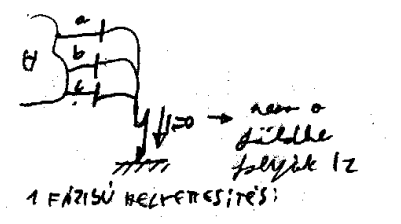 a
b
A
c
I=0 → nem a
földbe
folyik Iz
1 FÁZISÚ HELYETTESÍTÉS: